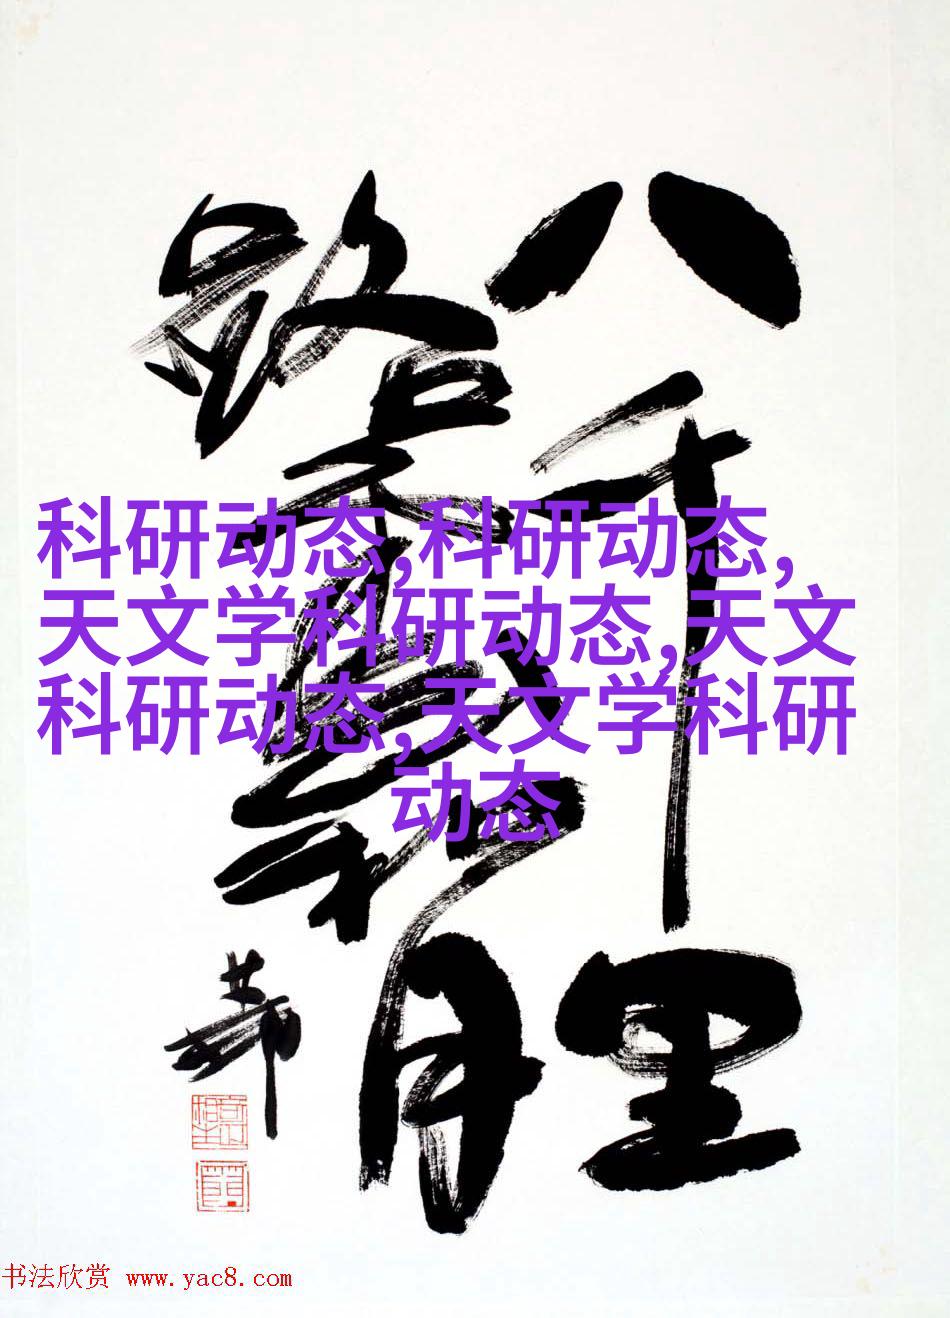 八千里
路雲和月
科研动态,科研动态,
天文学科研动态,天文
科研动态,天文学科研
动态
书法欣赏 www.yac8.com